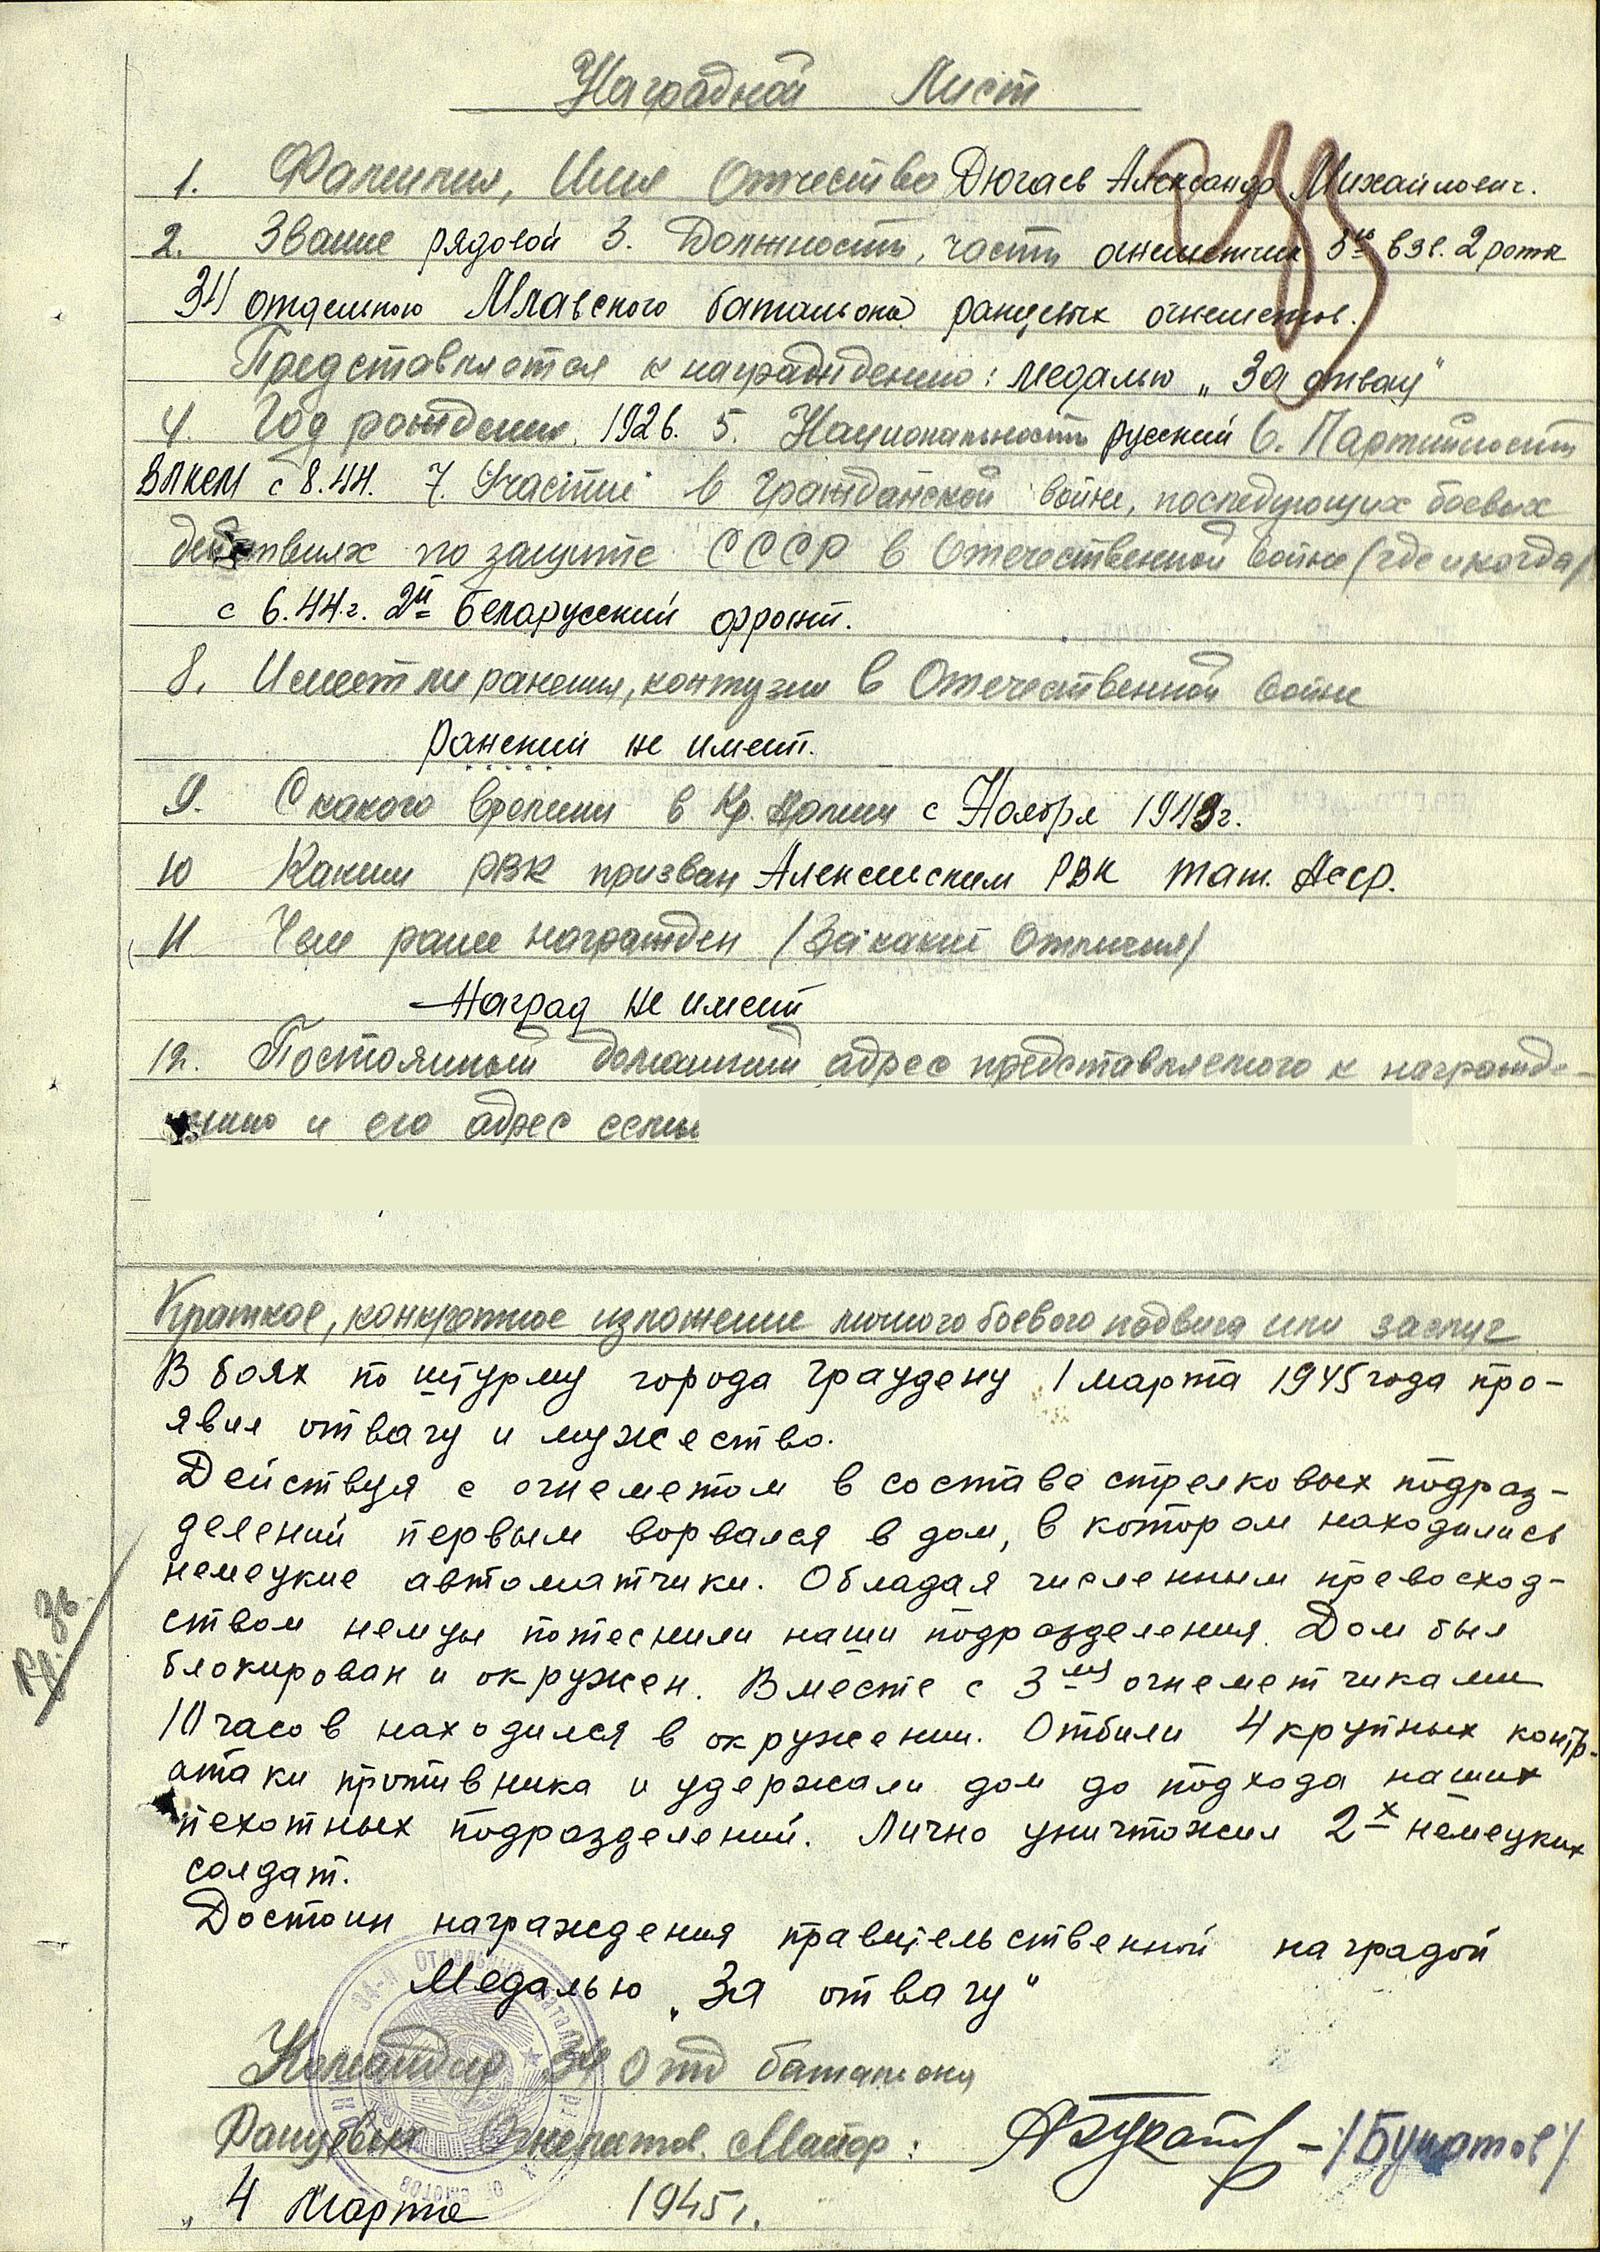 Наградной Лист
1. Фамилия, Имя Отчество Дюгаев Александр Михайлович.
2. Звание рядовой 3. Должность, часть огнеметчик 3го взв. 2 роты
34 отдельного Млавского батальона ранцевых огнеметов.
Представляется к награждению: медалью „За отвагу"
4. Год рождения 1926. 5. Национальность русский 6. Партийность
ВЛКСМ с 8.44. 7. Участие в гражданской войне, последующих боевых
действиях по защите СССР в Отечественной войне (где и когда)
с 6.44 г. 2й Белорусский фронт.
8. Имеет ли ранения, контузии в Отечественной войне
Ранений не имеет.
9. С какого времени в Кр. Армии с Ноября 1943 г.
10 Каким РВК призван РВК Тат. Асср.
11 Чем ранее награжден /За какие отличия/
Наград не имеет
12. Постоянный домашний адрес представляемого к награжде-
нию и его адрес семьи
Краткое, конкретное изложение личного боевого подвига или заслуг
В боях по штурму города Грауденц 1 марта 1945 года про-
явил отвагу и мужество.
Действуя с огнеметом в составе стрелковых подраз-
делений первым ворвался в дом, в котором находились
немецкие автоматчики. Обладая численным превосход-
ством немцы потеснили наши подразделения. Дом был
блокирован и окружен. Вместе с 3мя огнеметчиками
10 часов находился в окружении. Отбили 4 крупных контр-
атаки противника и удержали дом до подхода наших
пехотных подразделений. Лично уничтожил 2х немецких
солдат.
Достоин награждения правительственной наградой
Медалью „За отвагу"
Командир 34 Отд батальона
Ранцевых Огнеметов. Майор: - /Булатов/
„4 Марта 1945 г.